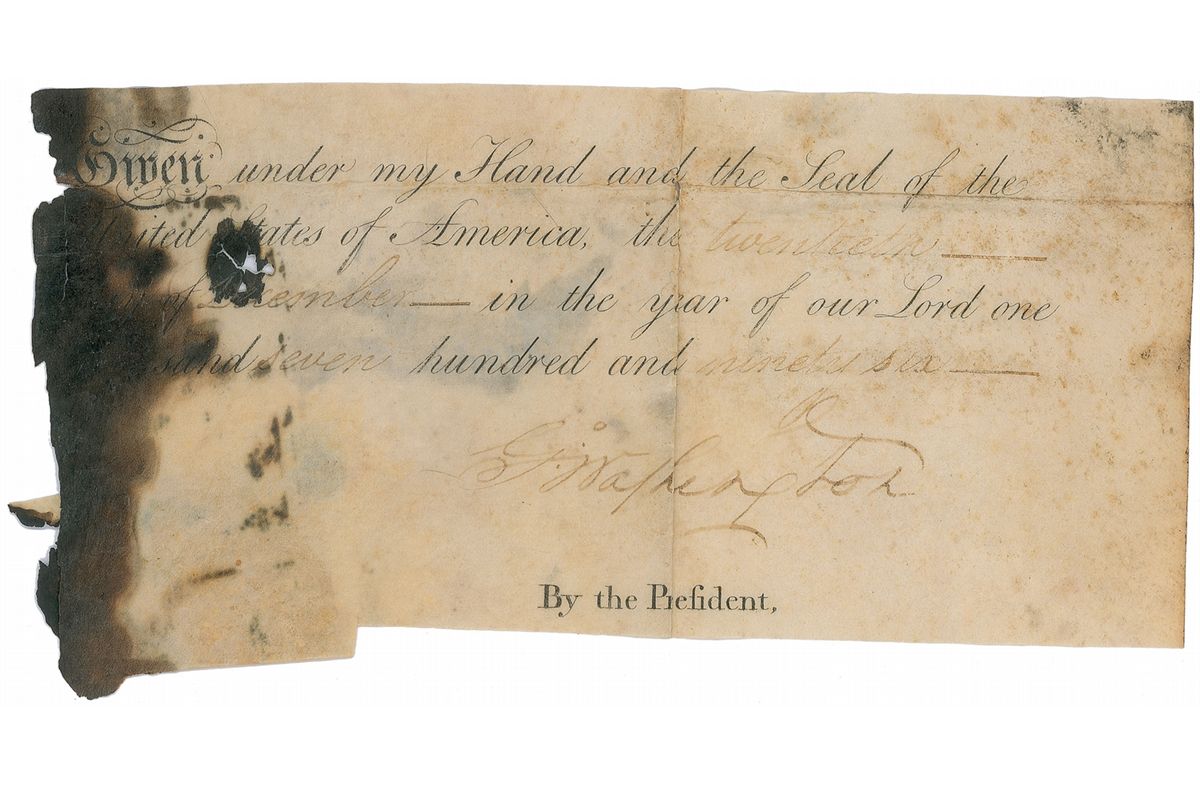 Given under my Hand and the Seal of the
United States of America, the twentieth
of December in the year of our Lord one
seven hundred and ninety six
G:Washington
By the Preſident,